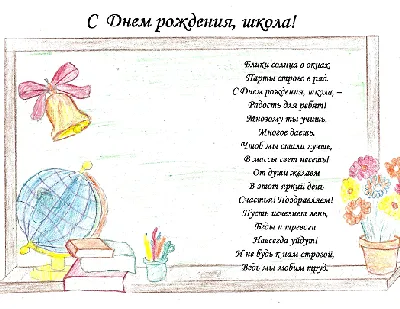 С Днем рождения, школа!
Блики солнца в окнах,
Парты строем в ряд.
С Днем рождения, школа, –
Радость для ребят!
Многому ты учишь,
Многое даешь,
Чтоб мы стали лучше,
В массы свет несешь!
От души желаем
В этот яркий день
Счастья! Поздравляем!
Пусть исчезнет лень,
Беды и тревоги
Навсегда уйдут!
И не будь к нам строгой,
Ведь мы любим труд.